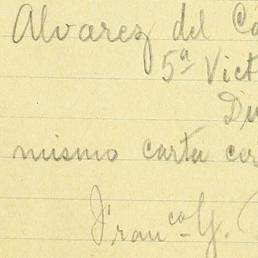 Alvarez del Co
5ª Vict
Du
mismo carta cer
Franco G.